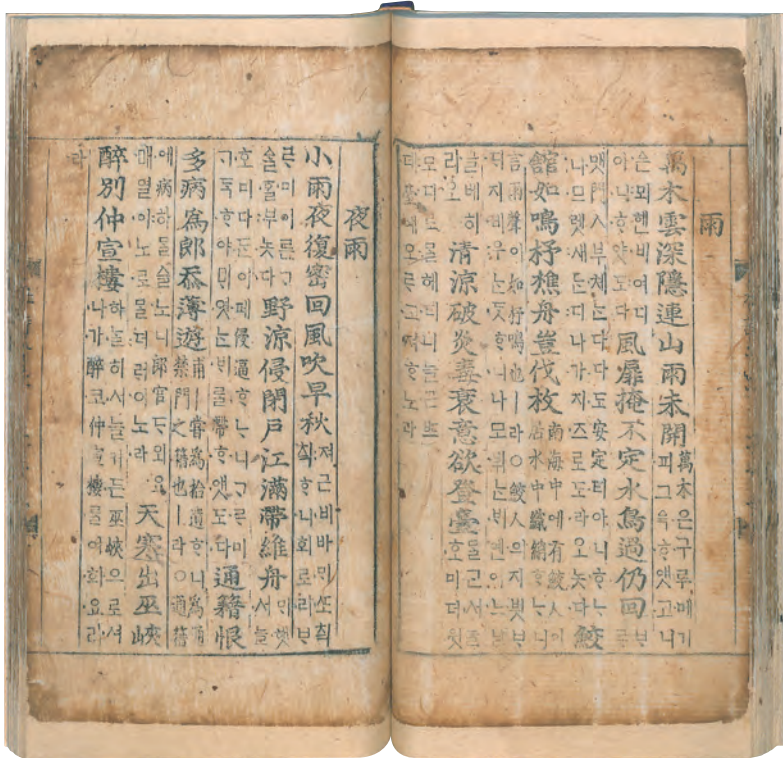 雨
萬木雲深隱連山雨未開 萬木은구루메기피그윽ᄒᆞ앳고니
은뫼핸비여디아니ᄒᆞ얏도다 風扉掩不定水鳥過仍回
맷門ㅅ부체ᄂᆞᆫ다다도安定티아니ᄒᆞᄂᆞ니므렛새ᄂᆞᆫ디나가지즈로도라오놋다 鮫
館如鳴杼樵舟豈伐枚 南海中에有鮫人이居水中織綃ᄒᆞᄂᆞ니
言雨聲이如杼鳴也ㅣ라○鮫人의지븻ᄇᆞ디지비우는ᄃᆞᆺᄒᆞ니나모뷔ᄂᆞᆫᄇᆡ엔어느낟
ᄂᆞᆯ베히리오 清涼破炎毒衰意欲登臺 ᄆᆞᆯ고서늘호미더윗
모딘ᄃᆞᄅᆞᆯ헤티니늘근ᄠᅳ디臺예오르고져ᄒᆞ노라
夜雨
小雨夜復密回風吹早秋 져근비바ᄆᆡᄯᅩᄎᆡᆨᄎᆡᆨᄒᆞ니회로리ᄇᆞ
ᄅᆞ미이른ᄀᆞᅀᆞᆯᄒᆞᆯ부놋다 野涼侵閉戶江滿帶維舟 ᄆᆡ햇서늘
호미다돈이페侵逼ᄒᆞᄂᆞ니ᄀᆞᄅᆞ미ᄀᆞᄃᆞᆨᄒᆞ야ᄆᆡ옛ᄂᆞᆫᄇᆡᄅᆞᆯ帶ᄒᆞ얫도다 通籍恨
多病爲郎忝薄遊 甫ㅣ嘗爲拾遺ᄒᆞ니爲通禁門之籍也ㅣ라○通籍
애病하ᄆᆞᆯ슬노니郎官ᄃᆞ외요매열이노로ᄆᆞᆯ더러이노라 天寒出巫峽
醉別仲宣樓 하ᄂᆞᆯ히서늘커든巫峽으로셔나가醉코仲宣樓ᄅᆞᆯ여희요리
라